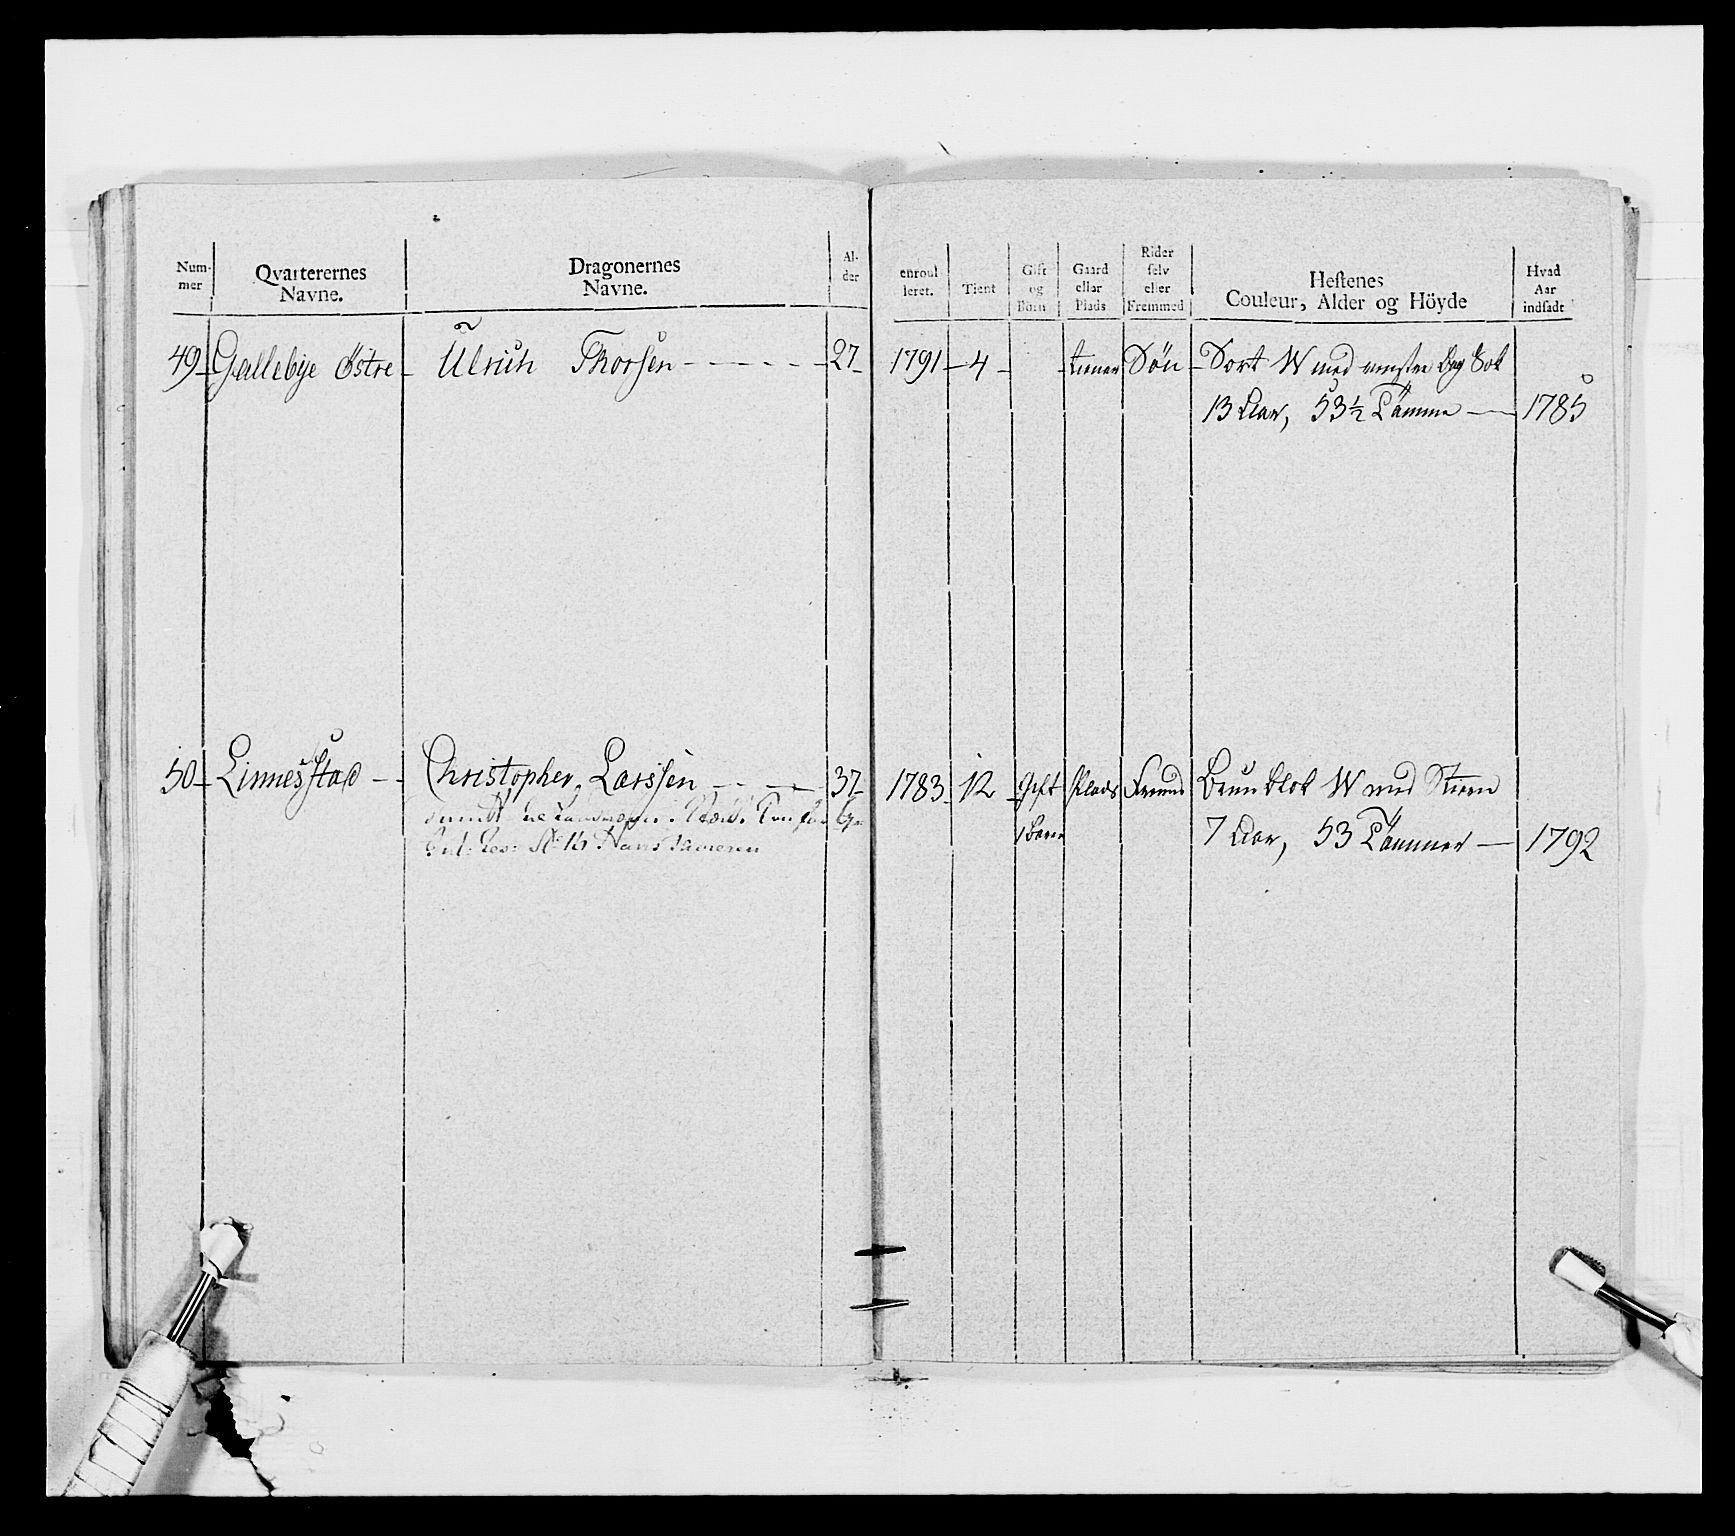 Num-
mer
Qvarterernes
Navne.
Dragonernes
Navne.
Al-
der
enroul
leret.
Tient
Gift
og
Børn
Gaard
eller
Plads
Rider
selv
eller
Fremmed
Hestenes
Couleur, Alder og Höyde
Hvad
Aar
indsadt
49 Gallebye Östre Ulrich Thorsen 27 1791 4 tiener Søn Sort W med venstre Bag Sok
13 Aar, 53 ½ Tomme 1785
50 Linnestad Christopher Larssen 37 1783 12 Gift Plads Fremd Bruun blok W med Stiern
1 Barn 7 Aar, 53 Tommer 1792